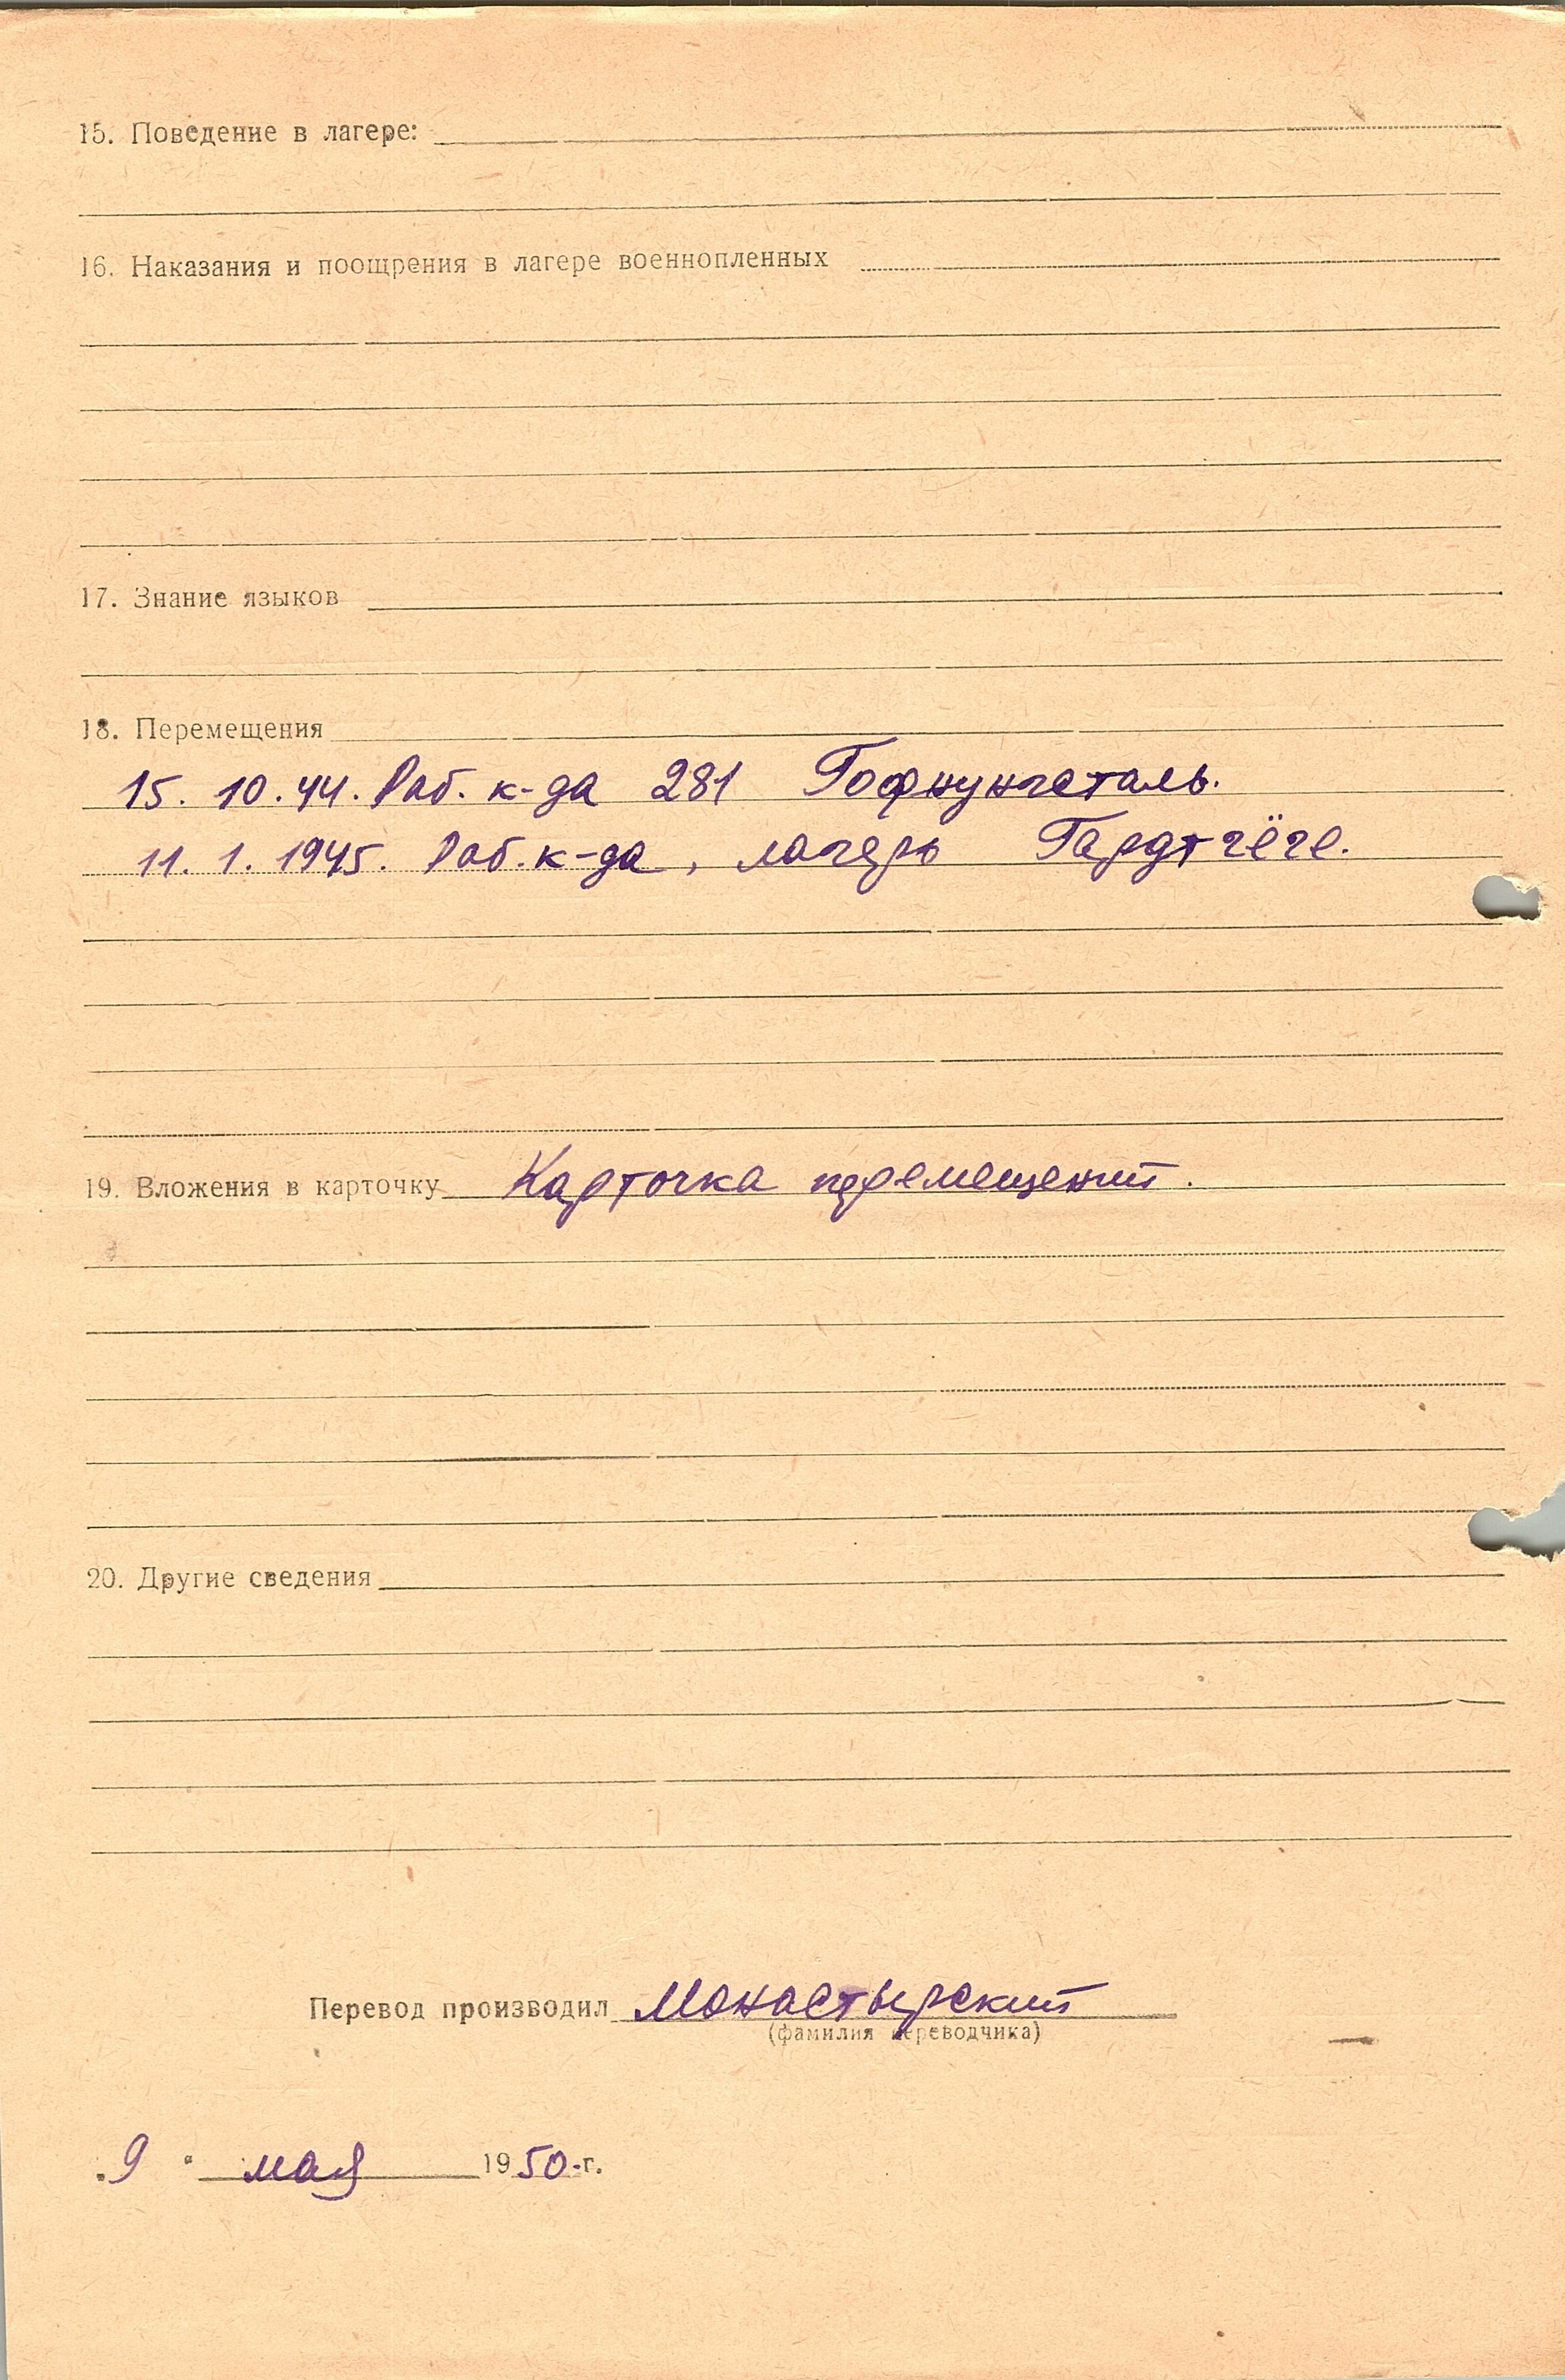 15. Поведение в лагере:
16. Наказания и поощрения в лагере военнопленных
17. Знание языков
18. Перемещения
15. 10. 44. Раб. к-да 281 Гофнунгсталь.
11. 1. 1945. Раб. к-да, лагерь Гардтгёге.
19. Вложения в карточку Карточка перемещений.
20. Другие сведения
Перевод производил Монастырский
(фамилия переводчика)
„9 “ мая 1950 г.